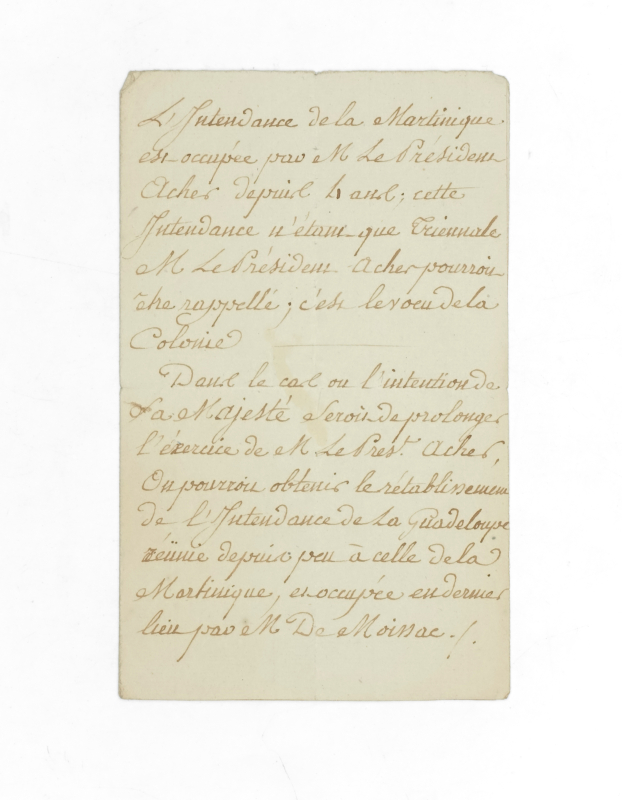 L'Intendance de la Martinique.
est occupée par M Le Président
Acher depuis 4 ans; cette
Intendance n'étant que Triennale
M Le Président Acher pourroit
être rappellé; c'est le voeu de la
Colonie
Dans le cas ou l'intention de
Sa Majesté seroit de prolonger
l'éxercice de M Le Prest. Acher,
On pourroit obtenir le rétablissement
de l'Intendance de La Guadeloupe
réünie depuis peu à celle de la
Martinique, et occupée en dernier
lieu par M De Moissac ./.